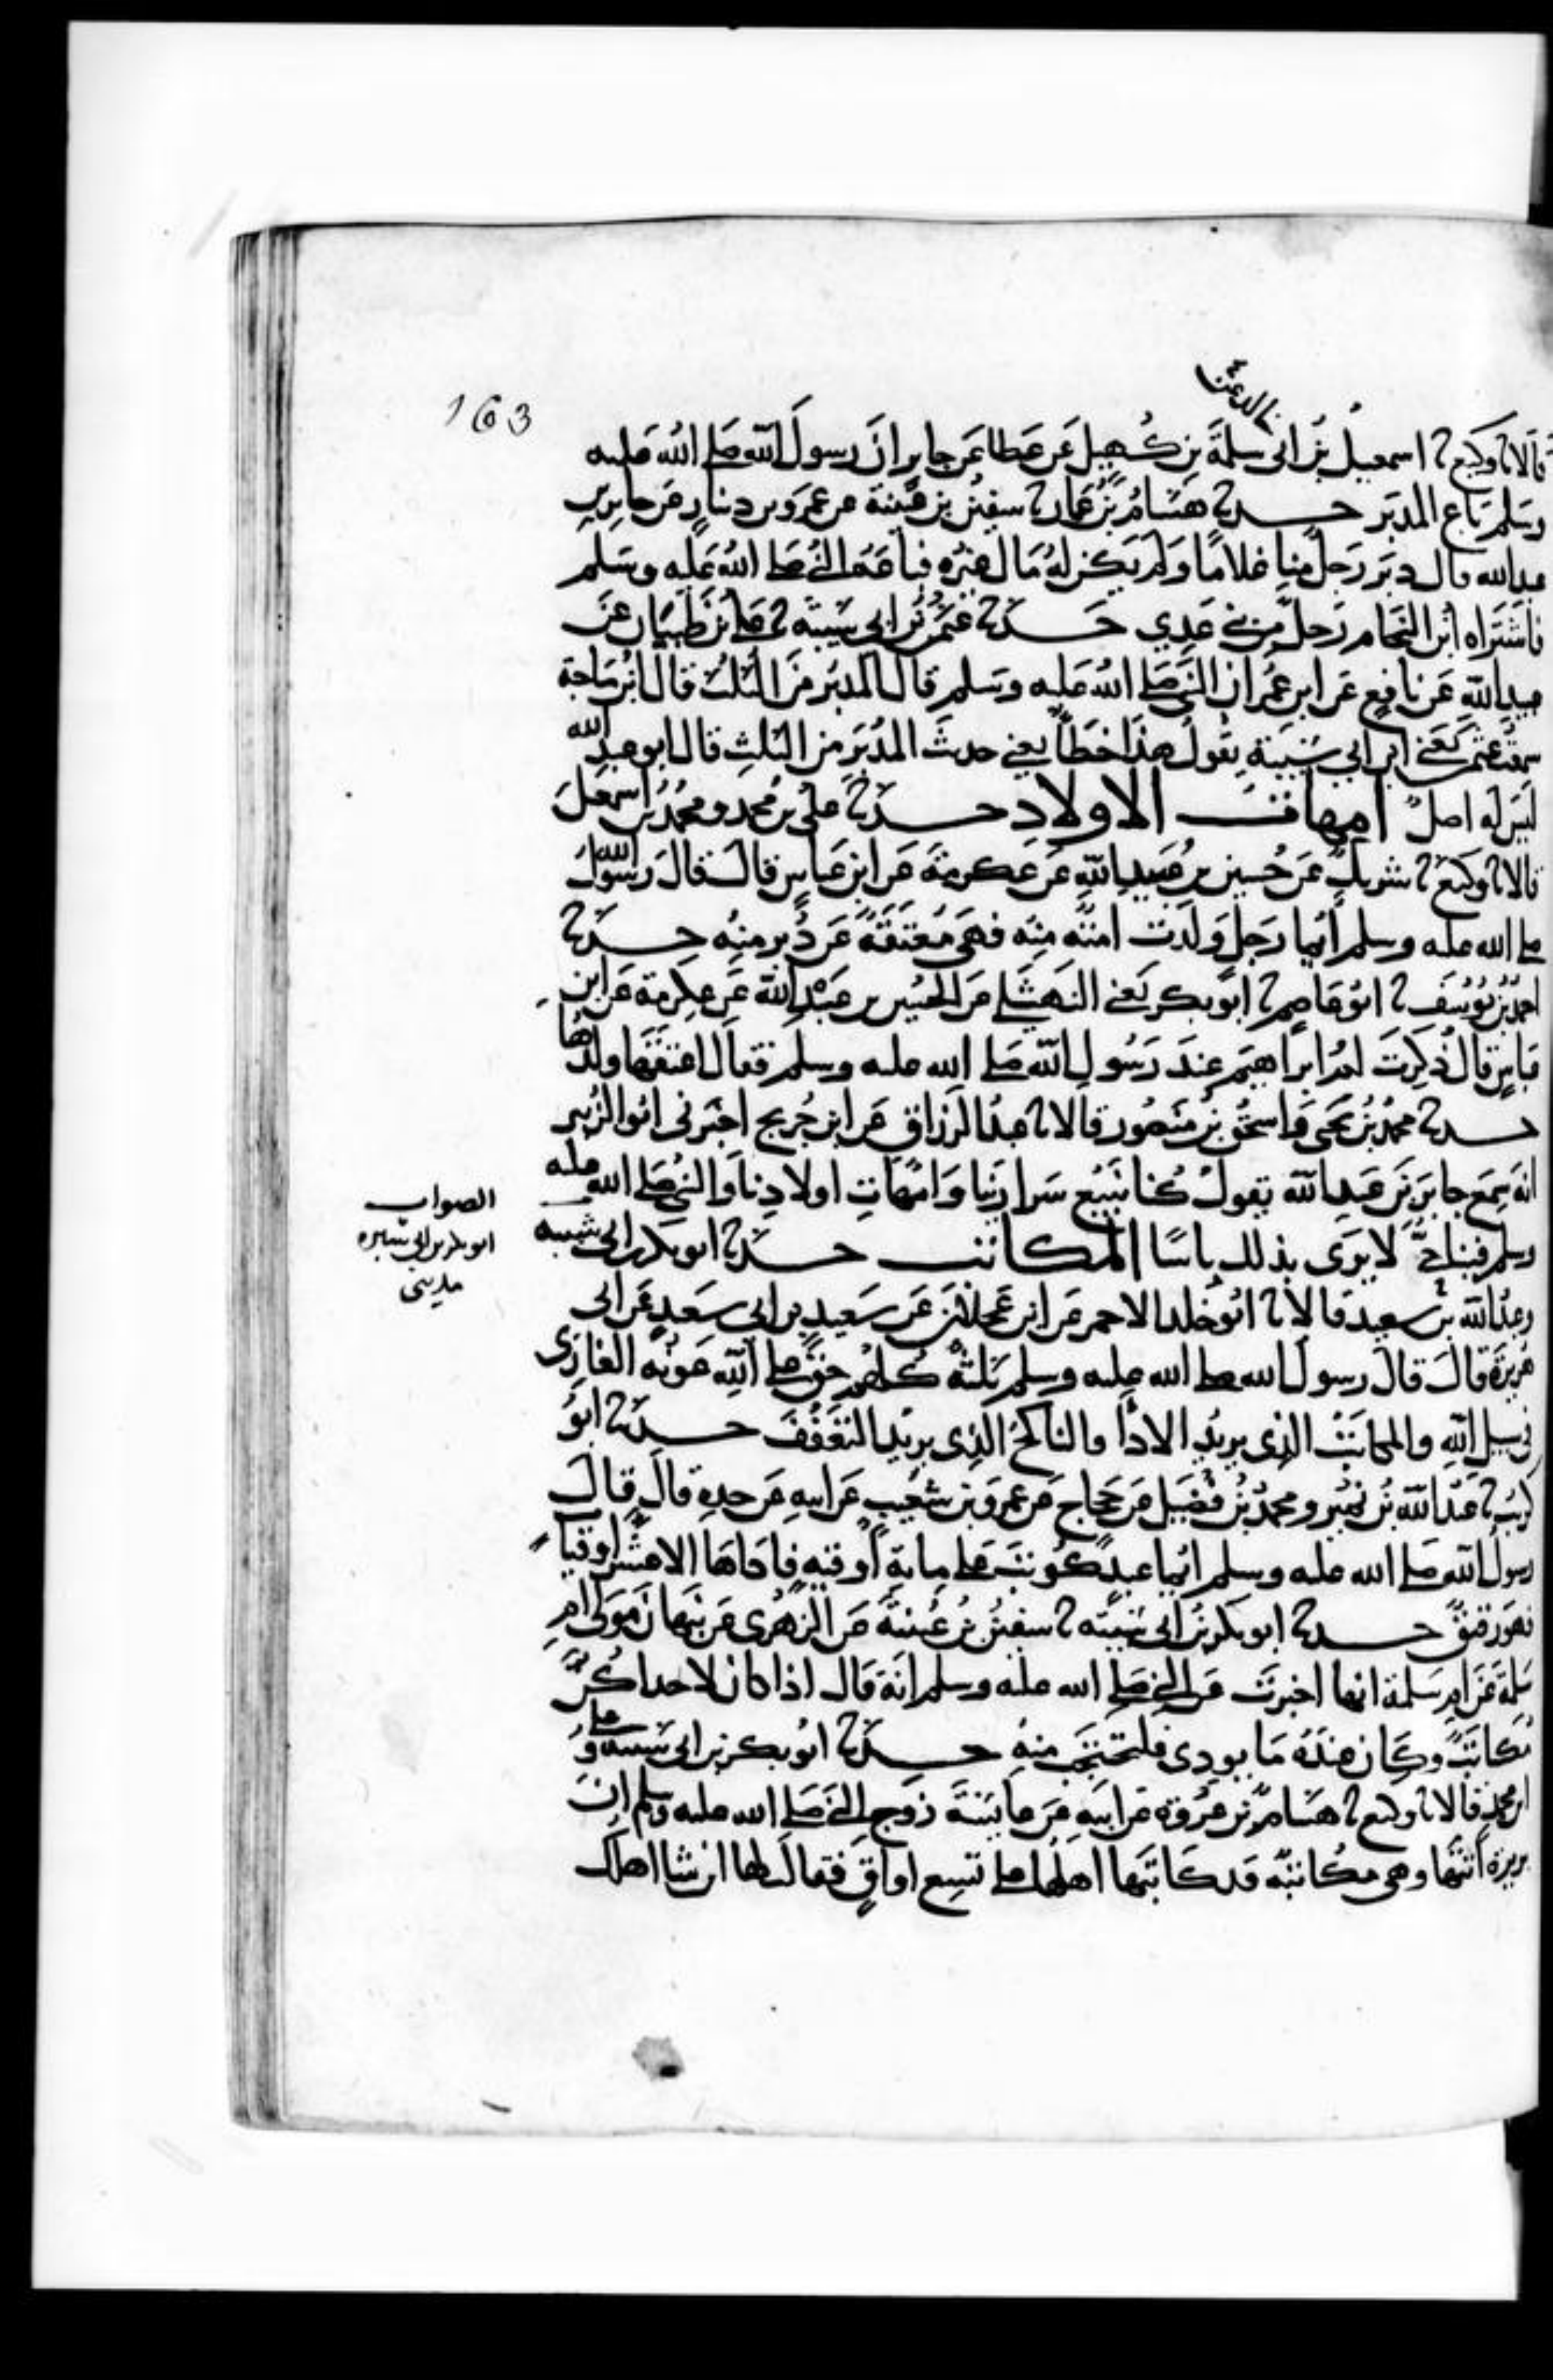 163
خالد عن
قالا نا وكيع نا اسمعيل بن ابى سلمة بن كهيل عن عطا عن جابر ان رسول الله صلى الله عليه
وسلم باع المدبر حدثنا هشام بن عمار نا سفين بن عيينة عن عمرو بن دينار عن جابر بن
عبد الله قال دبر رجل منا غلاما ولم يكن له مال غيره فباعه النبي صلى الله عليه وسلم
فاشتراه ابن النحام رجل من بني عدي حدثنا عثمن بن ابي شيبة نا علي بن ظبيان عن
عبيد الله عن نافع عن ابن عمر ان النبي صلى الله عليه وسلم قال المدبر من الثلث قال ابن ماجة
سمعت عثمن يعني ابن ابي شيبة يقول هذا خطأ يعني حديث المدبر من الثلث قال ابو عبد الله
ليس له اصل امهات الاولاد حدثنا علي بن محمد ومحمد بن اسمعيل
قالا نا وكيع نا شريك عن حسين بن عبيد الله عن عكرمة عن ابن عباس قال قال رسول الله
صلى الله عليه وسلم ايما رجل ولدت امته منه فهي معتقة عن دبر منه حدثنا
احمد بن يوسف نا ابو عاصم نا ابو بكر يعني النهشلي عن الحسين بن عبد الله عن عكرمة عن ابن
عباس قال ذكرت ام ابراهيم عند رسول الله صلى الله عليه وسلم فقال اعتقها ولدها
حدثنا محمد بن يحيى واسحق بن منصور قالا نا عبد الرزاق عن ابن جريج اخبرني ابو الزبير
انه سمع جابر بن عبد الله يقول كنا نبيع سرارينا وامهات اولادنا والنبي صلى الله عليه
وسلم فينا حي لا يرى بذلك باسا المكاتب حدثنا ابو بكر بن ابي شيبة
الصواب
ابو بكر بن ابي شيبة
وعبد الله بن سعيد قالا نا ابو خلد الاحمر عن ابن عجلان عن سعيد بن ابي سعيد عن ابي
هريرة قال قال رسول الله صلى الله عليه وسلم ثلثة كلهم حق على الله عونه الغازي
في سبيل الله والمكاتب الذي يريد الادا والناكح الذي يريد التعفف حدثنا ابو
كريب نا عبد الله بن نمير ومحمد بن فضيل عن حجاج عن عمرو بن شعيب عن ابيه عن جده قال قال
رسول الله صلى الله عليه وسلم ايما عبد كوتب على ماية اوقية فاداها الا عشر اوقيات
فهو رقيق حدثنا ابو بكر بن ابي شيبة نا سفين بن عيينة عن الزهري عن نبهان مولى ام
سلمة عن ام سلمة انها اخبرت عن النبي صلى الله عليه وسلم انه قال اذا كان لاحداكن
مكاتب وكان عنده ما يودي فلتحتجب منه حدثنا ابو بكر بن ابي شيبة وعلي
ابن محمد قالا نا وكيع نا هشام بن عروة عن ابيه عن عايشة زوج النبي صلى الله عليه وسلم ان
بريرة اتتها وهي مكاتبة قد كاتبها اهلها على تسع اواق فقالت لها ان شا اهلك